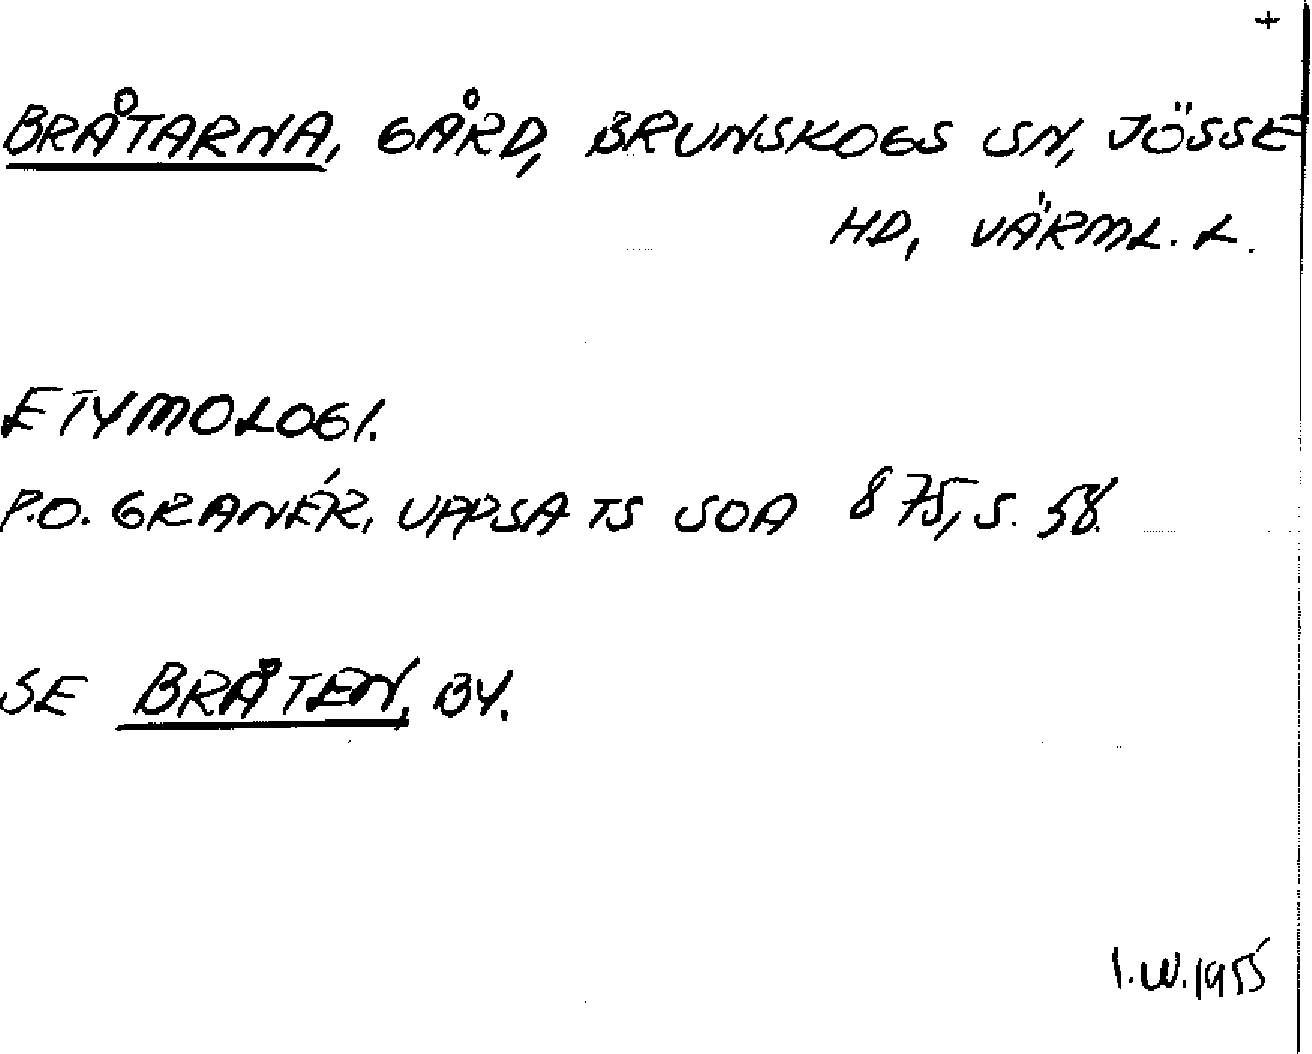 +
BRÅTARNA, GÅRD, BRUNSKOGS SN, JÖSSE
HD, VÄRML. L.
ETYMOLOGI.
P.O. GRANÉR, UPPSATS SOA 875, S. 58.
SE BRÅTEN, BY.
I.W. 1955